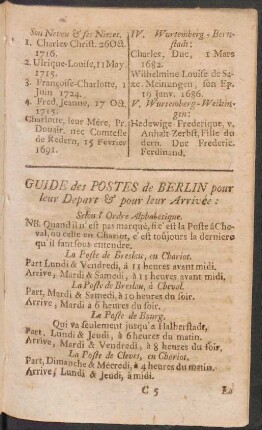 Son Neveu & ses Nieces.
1. Charles-Christ. 26 Oct.
1716.
2. Ulrique-Louise, 11 May.
1715.
3. Françoise-Charlotte, 1
Juin 1724.
4. Fred. Jeanne, 17 Oct.
1715.
Charlotte, leur Mére, Pr.
Douair. nec Comtesse
de Redern, 15 Fevrier
1691.
IV. Wurtemberg-Bern-
stadt:
Charles, Duc, 1 Mars
1682.
Wilhelmine Louise de Sa-
xe. Meinungen, son Ep.
19 Janv. 1686.
V. Wurtemberg-Weiltin-
gen:
Hedewige-Frederique, v.
Anhalt-Zerbst, Fille du
dern. Duc Frederic
Ferdinand.
GUIDE des POSTES de BERLIN pour
leur Depart & pour leur Arrivée:
Selon l'Ordre Alphabetique.
NB. Quand il n'est pas marqué, si c'est la Poste à Che-
val, ou celle en Chariot, c'est toujours la derniere
qu'il faut sous entendre.
La Poste de Breslau, en Chariot.
Part Lundi & Vendredi, à 11 heures avant midi.
Arrive, Mardi & Samedi, à 11 heures avant midi.
La Poste de Breslau, à Cheval.
Part, Mardi & Samedi, à 10 heures du soir.
Arrive, Mardi à 6 heures du soir.
La Poste de Bourg,
Qui va seulement jusqu'à Halberstadt,
Part, Lundi & Jeudi, à 6 heures du matin.
Arrive, Mardi & Vendredi, à 8 heures du soir.
La Poste de Cleves, en Chariot.
Part, Dimanche & Mecredi, à 4 heures du matin.
Arrive, Lundi & Jeudi, à midi.
C 5 La